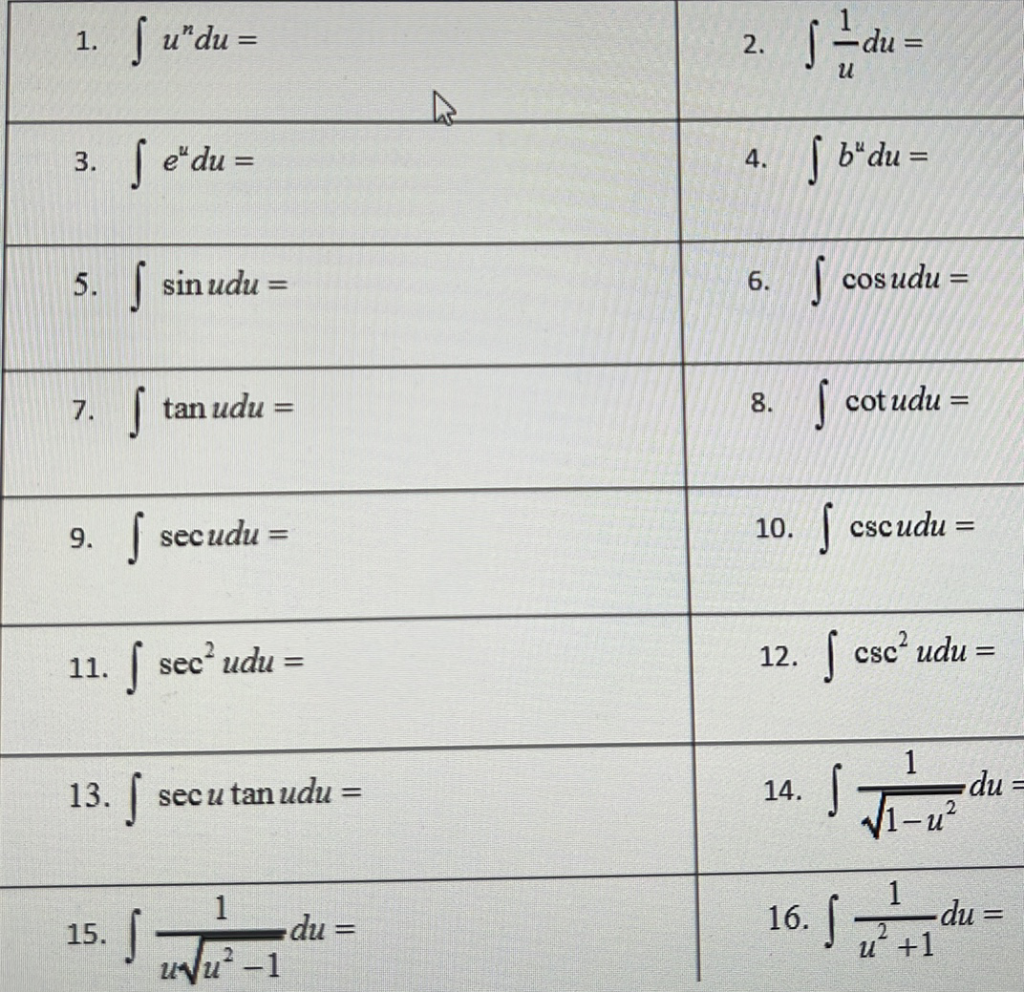 1. ∫ uⁿdu =
2. ∫ 1/u du =
3. ∫ eᵘdu =
4. ∫ bᵘdu =
5. ∫ sin udu =
6. ∫ cos udu =
7. ∫ tan udu =
8. ∫ cot udu =
9. ∫ sec udu =
10. ∫ csc udu =
11. ∫ sec² udu =
12. ∫ csc² udu =
13. ∫ sec u tan udu =
14. ∫ 1/√(1−u²) du =
15. ∫ 1/(u√(u² −1)) du =
16. ∫ 1/(u² +1) du =